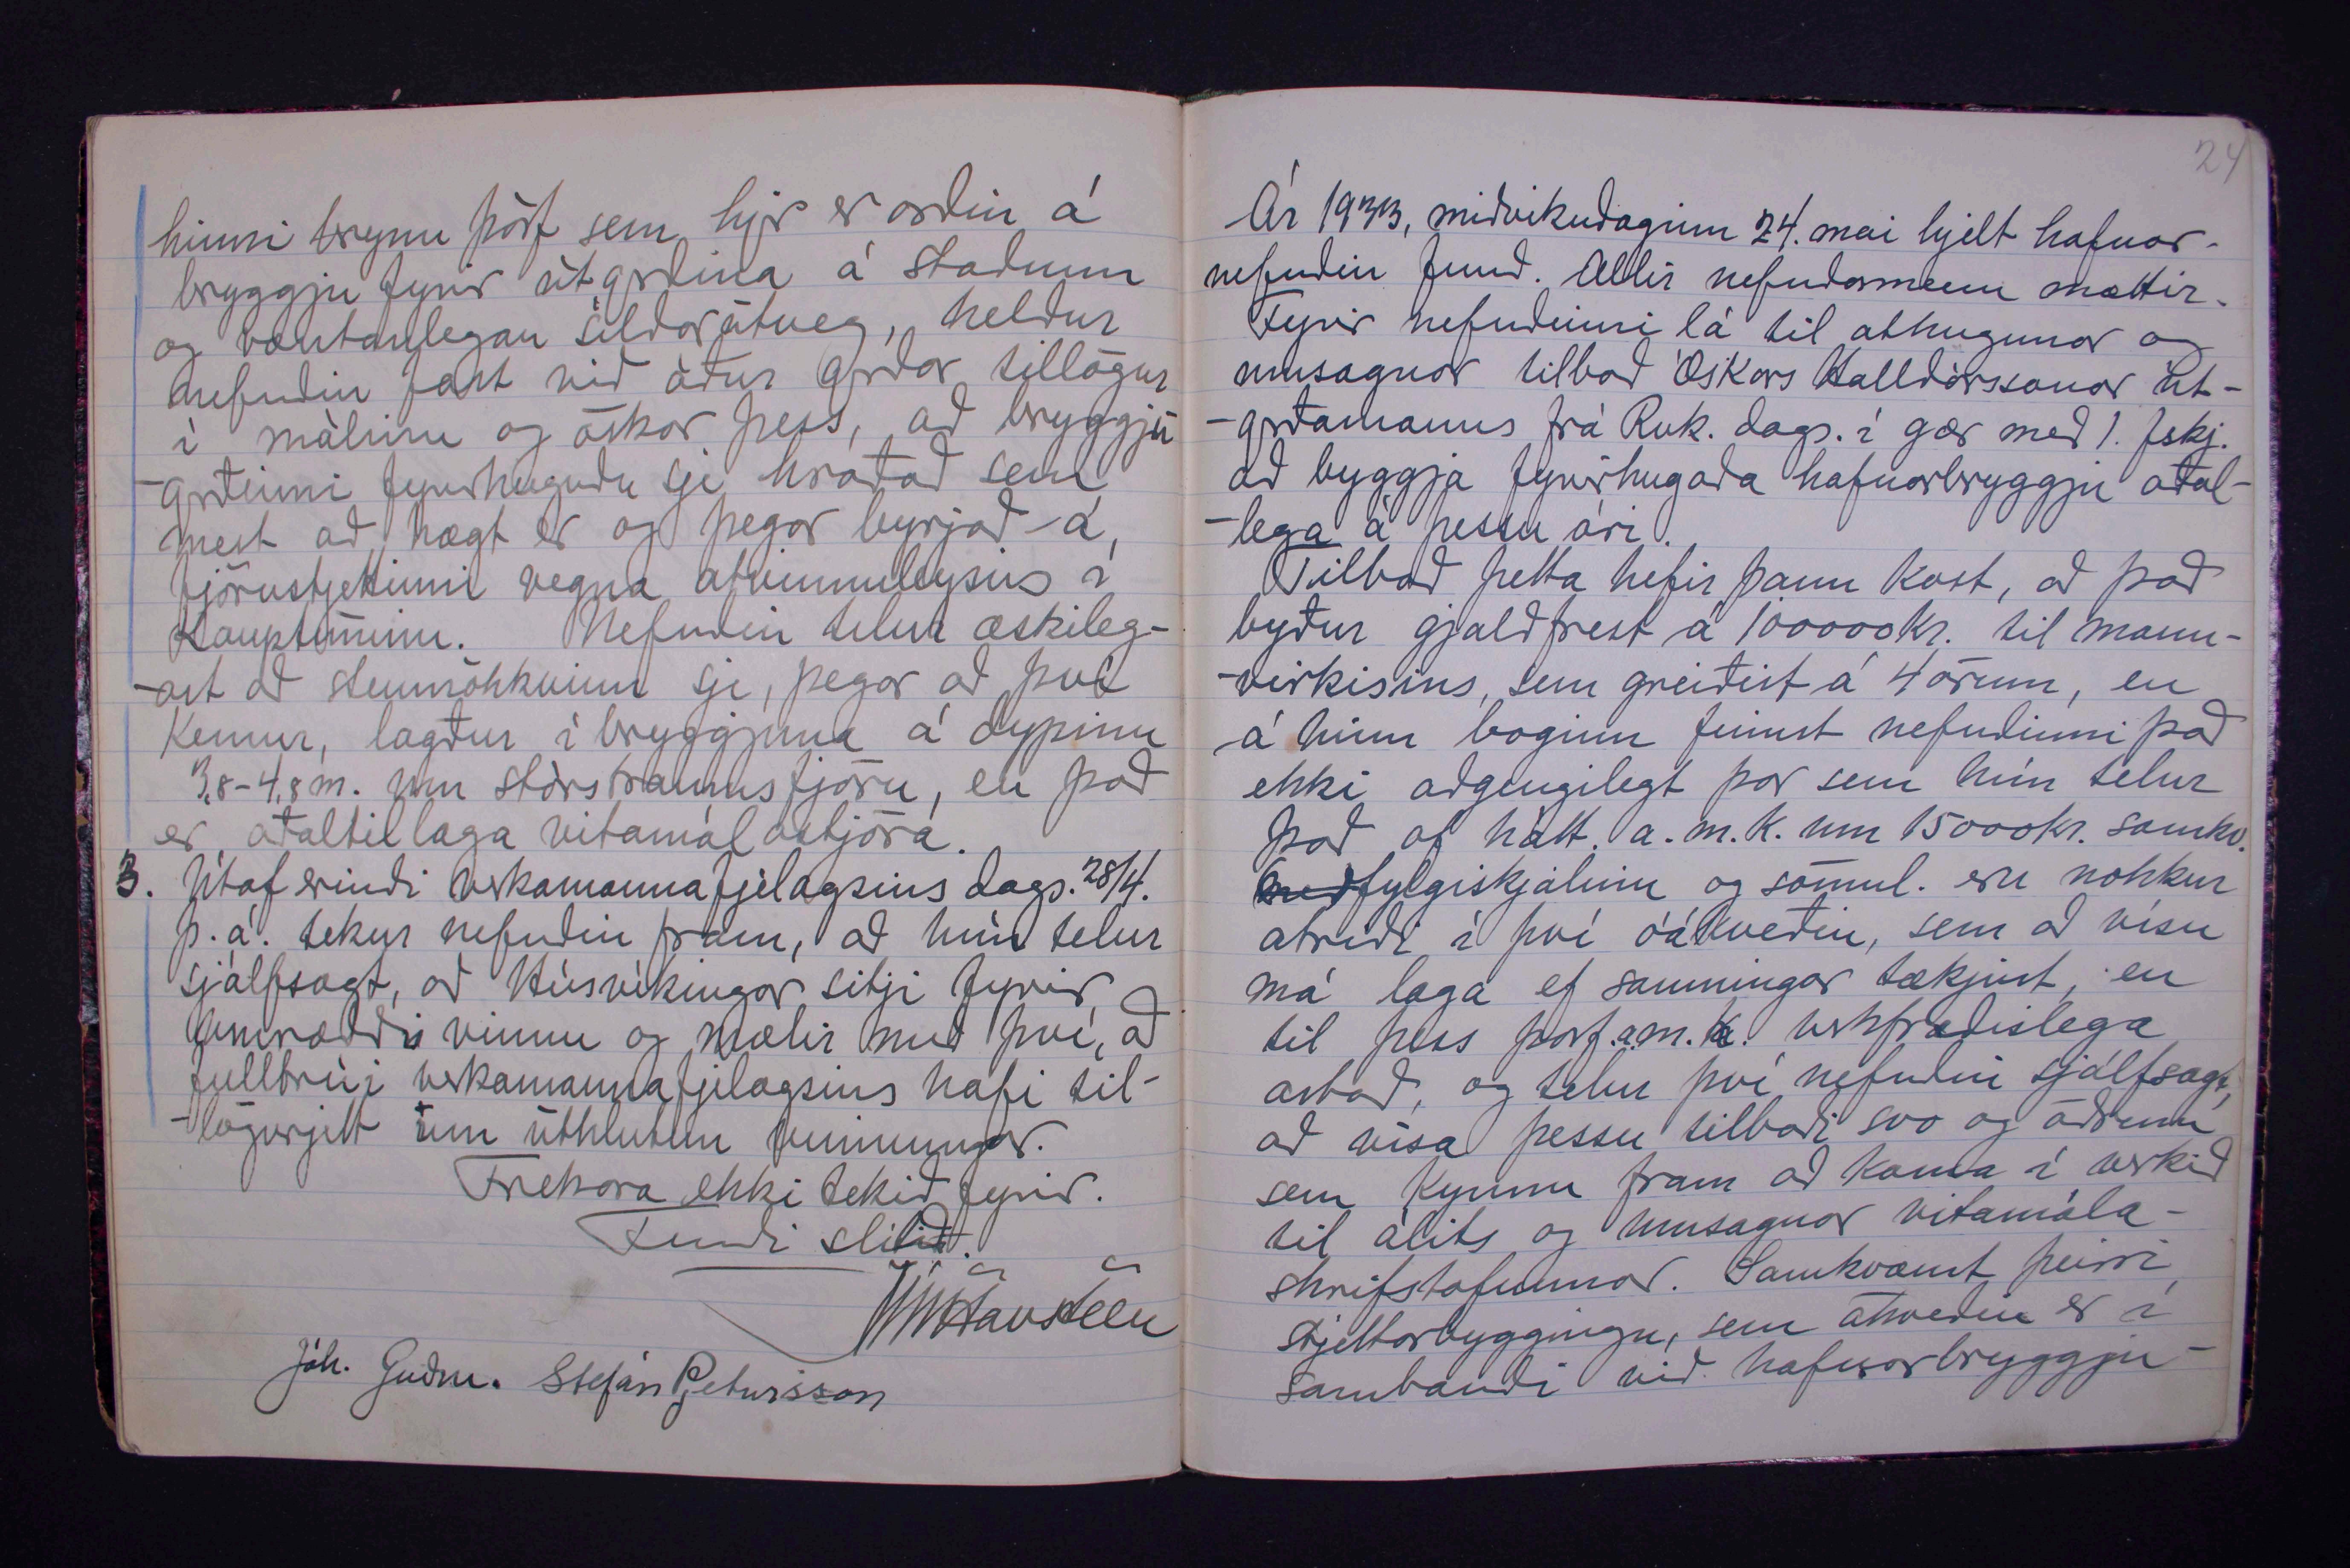 hinni brýnu þörf sem hjer er orðin á
bryggju fyrir útgerðina á staðnum
og væntanlegan síldarútveg, heldur
nefndin fast við áður gerðar tillögur
í málinu og óskar þess, að bryggju
-gerðinni fyrirhuguðu sje hraðað sem
mest að hægt er og þegar byrjað á
fjörustjettinni vegna atvinnuleysins í
Kauptúninu. Nefndin telur æskileg-
-ast að steinnökkvinn sje, þegar að því
Kemur, lagður í bryggjuna á dýpinu
3,8-4,8 m. um stórstraumsfjöru, en það
er aðaltillaga vitamálastjóra.
3. Útaf erindi verkamannafjelagsins dags. 28/4.
þ.á. tekur nefndin fram, að hún telur
sjálfsagt, að Húsvíkingar sitji fyrir
umræddri vinnu og mælir með því, að
fulltrúi verkamannafjelagsins hafi til-
-lögurjett um úthlutun vinnunnar.
Frekara ekki tekið fyrir.
Fundi slitið.
Havsteen
Jóh. Guðm. Stefán Pjetursson
24
Ár 1933, miðvikudaginn 24. maí hjelt hafnar-
nefndin fund. Allir nefndarmenn mættir.
Fyrir nefndinni lá til athugunar og
umsagnar tilboð Óskars Halldórssonar út-
-gerðamanns frá Rvk. dags. í gær með 1. fskj.
að byggja fyrirhugaða hafnarbryggju aðal-
-lega á þessu ári.
Tilboð þetta hefir þann Kost, að það
býður gjaldfrest á 100000 kr. til mann-
-virkisins, sem greiðist á 4 árum, en
á hinn boginn finnst nefndinni það
ekki aðgengilegt þar sem hún telur
það of hátt a.m.k. um 15000 kr. samkv.
fylgiskjalinu og sömul. eru nokkur
atriði í því óákveðin, sem að vísu
má laga ef samningar tækjust, en
til þess þarf a.m.k. verkfræðislega
aðstoð, og telur því nefndin sjálfsagt,
að vísa þessu tilboði svo og öðrum
sem Kynnu fram að koma í verkið
til álits og umsagnar vitamála-
skrifstofunnar. Samkvæmt þeirri
stjettarbyggingu, sem ákveðin er í
sambandi við hafnarbryggju-